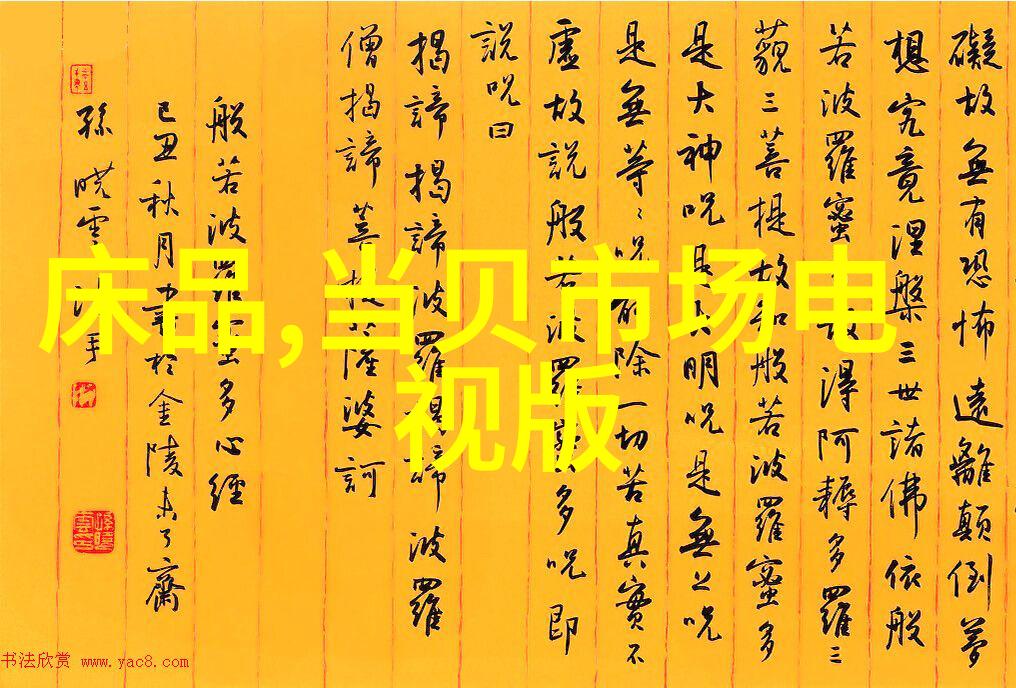 礙故無有恐怖遠離顛倒夢
想究竟涅槃三世諸佛依般
若波羅蜜 故得阿耨多羅三
藐三菩提故知般若波羅蜜多
是大神呪是大明呪是無上呪
是無等〻呪能除一切苦真實不
虛故説般若波羅蜜多呪即
説呪曰
揭諦揭諦波羅揭諦波羅
僧揭諦菩提薩婆訶
般若波羅蜜多心經
己丑秋月 於金陵未了齋
孫曉雲沐手
床品,当贝市场电
视版
书法欣赏 www.yac8.com